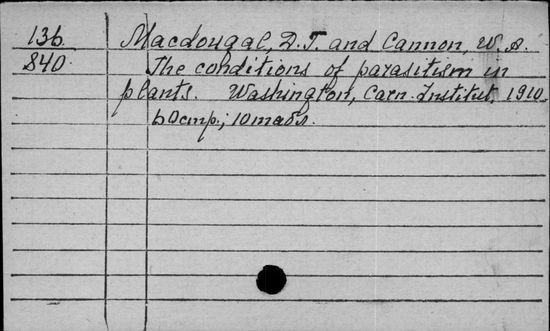 136 Macdougal, D.T. and Cannon, W.A.
840. The conditions of parasitism in
plants. Washington, Carn. Institut. 1910.
60 cmp.; 10 maos.